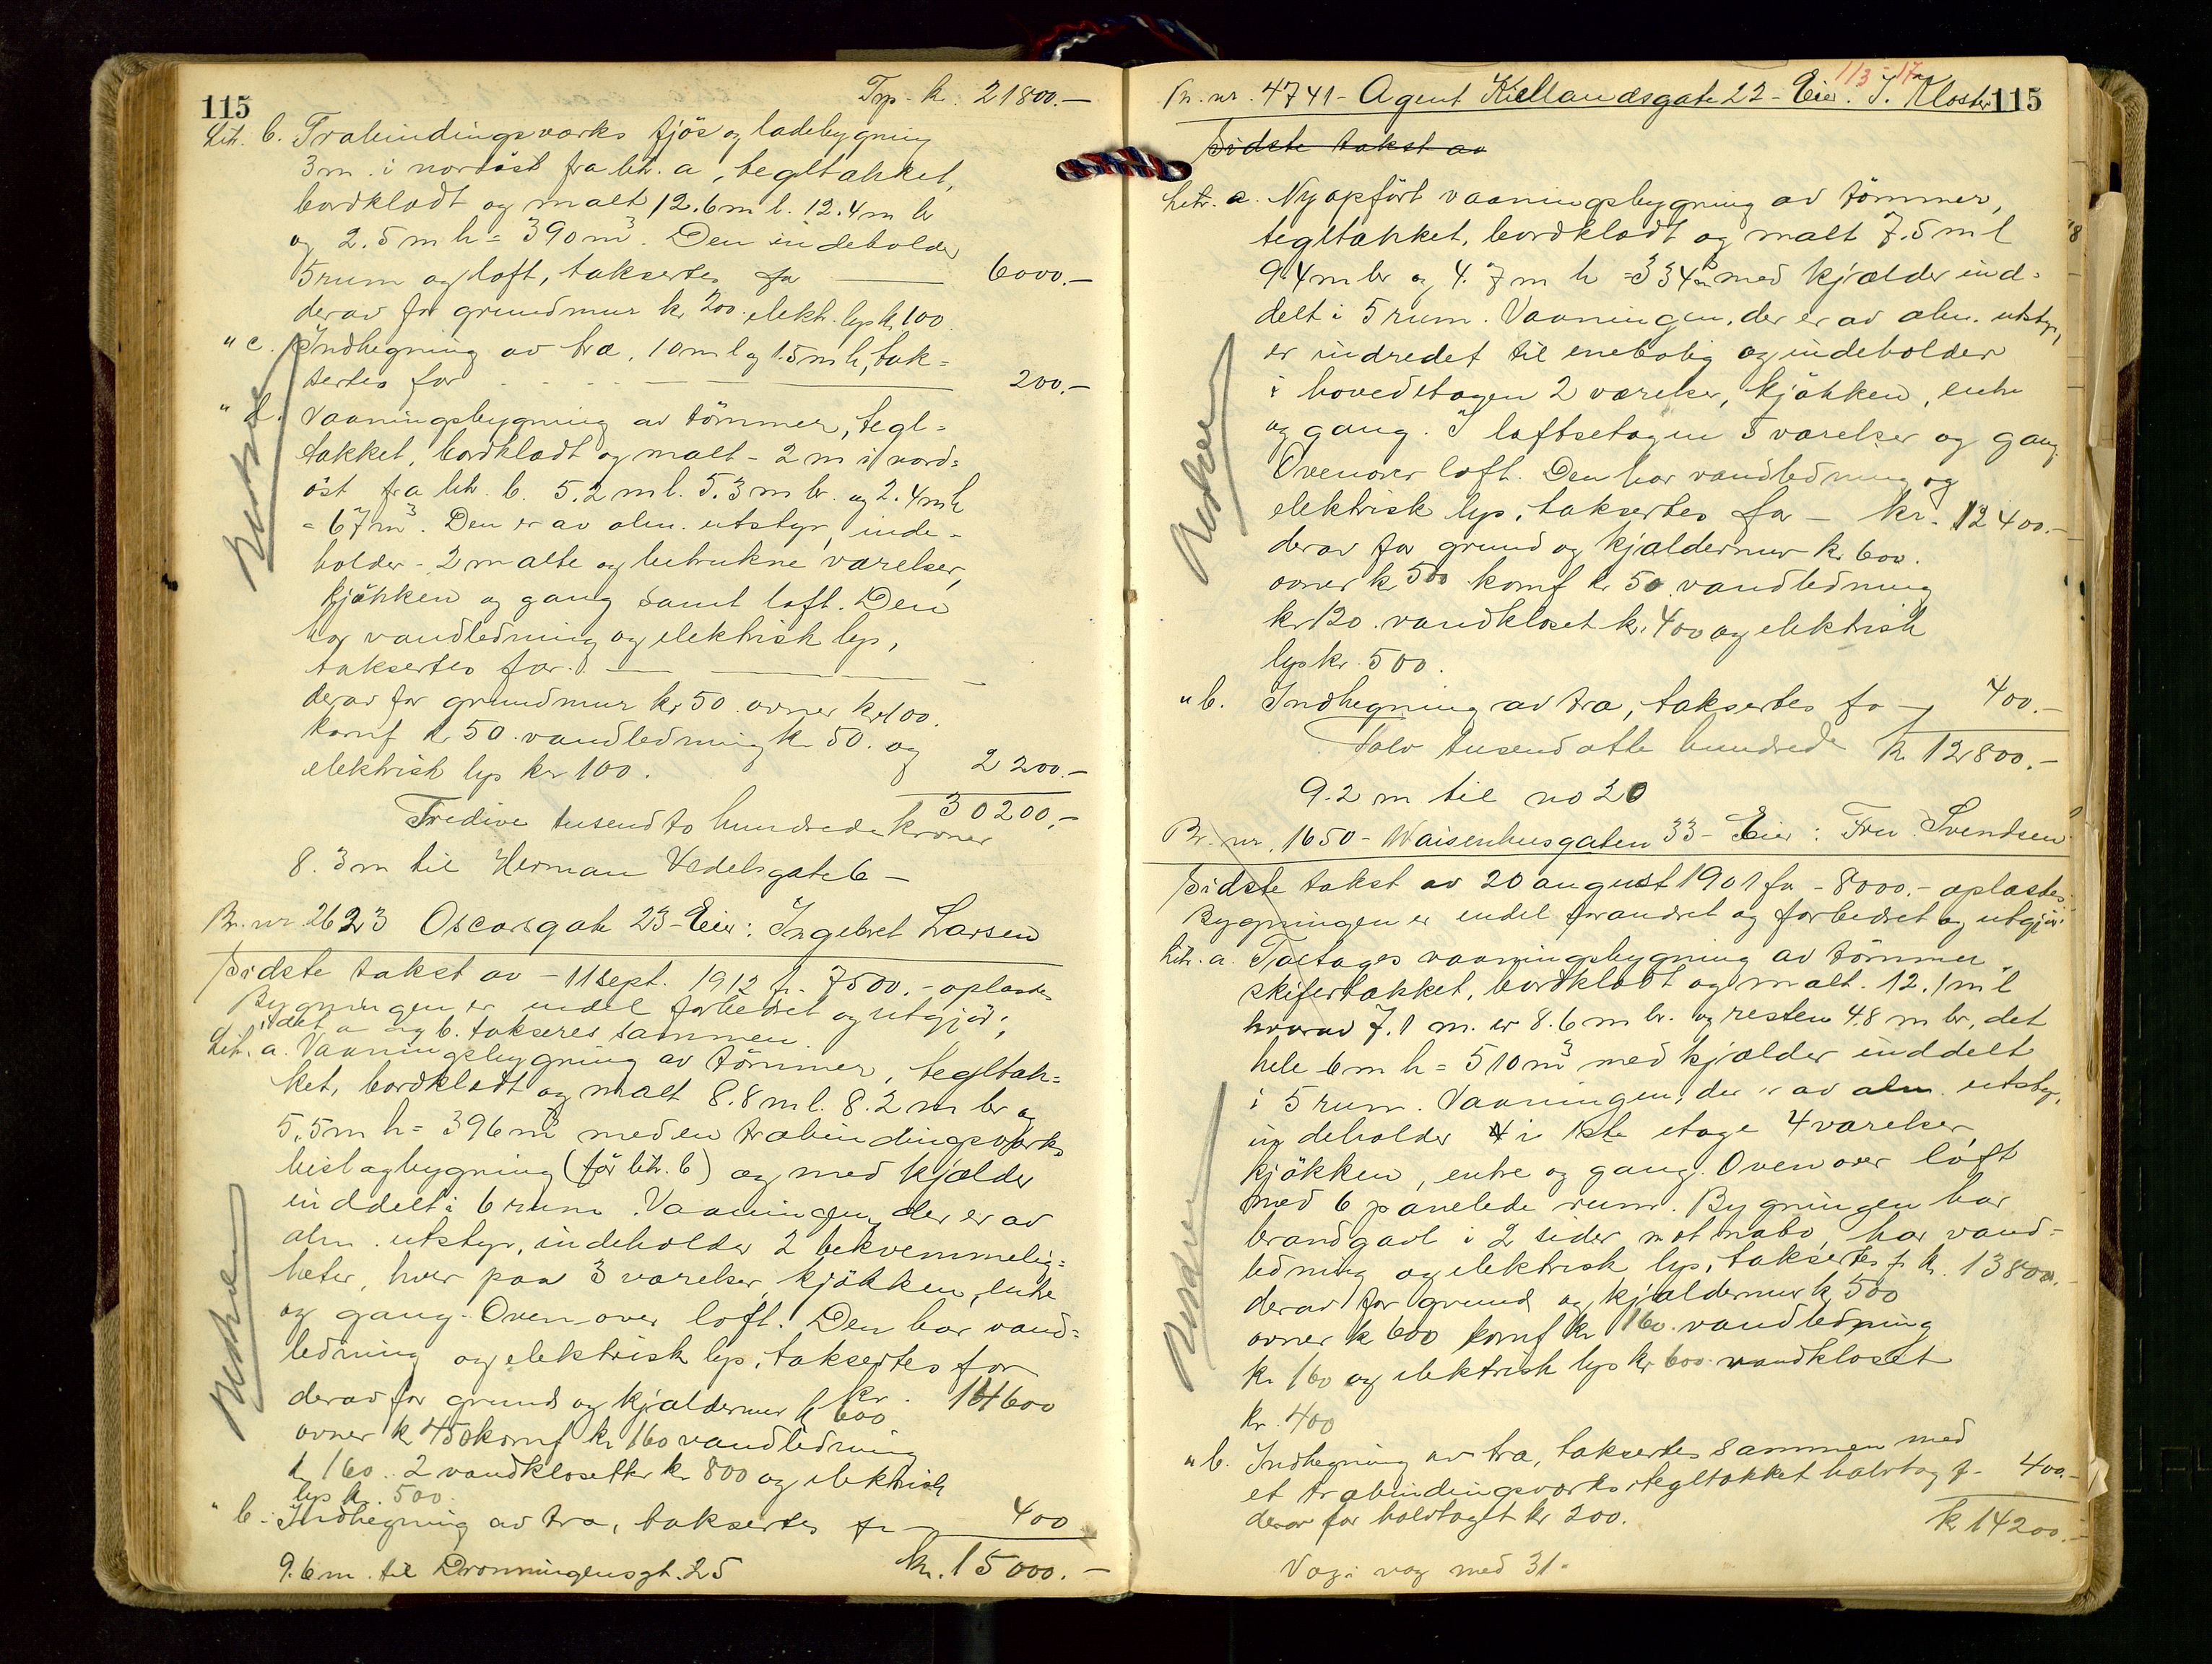 115
Trp. kr. 21800.—
Litr. b. Træbindingsværks fjös og ladebygning
3 m. i nordöst fra litr. a, tegltækket,
bordklædt og malt 12.6 m l. 12.4 m br
og 2.5 m h = 390 m³. Den indeholder
5 rum og loft, taksertes for — 6000.—
derav for grundmur kr. 200. elekt. lys kr. 100
" c. Indhegning av træ, 10 m l og 1.5 m h, tak=
sertes for — 200.—
" d. Vaaningsbygning av tömmer, tegl=
tækket, bordklædt og malt - 2 m i nord=
öst fra litr. b. 5.2 m l. 5.3 m br. og 2.4 m h
= 67 m³. Den er av alm. utstyr, inde-
holder - 2 malte og betrukne værelser,
kjökken og gang samt loft. Den
har vandledning og elektrisk lys,
taksertes for. —
derav for grundmur kr. 50. ovner kr. 100.
komf kr 50. vandledning kr. 50. og
elektrisk lys kr 100. 2200.—
30200.—
Tredive tusend to hundrede kroner
8.3 m til Herman Wedelsgate 6 —
Br. nr 2623 Oscarsgate 23 - Eier: Ingebret Larsen
Sidste takst av - 11 sept. 1912 fr. 7500.- oplæstes
Bygningen er endel forbedret og utgjör;
idet a og b. takseres sammen.
Litr. a. Vaaningsbygning av tömmer, tegltæk=
ket, bordklædt og malt 8.8 m l. 8.2 m br og
5.5 m h = 396 m³ med en træbindingsværks
bislagbygning (för litr. b) og med kjælder
inddelt i 6 rum. Vaaningen, der er av
alm. utstyr, indeholder 2 bekvemmelig=
heter, hver paa 3 værelser, kjökken, entre
og gang. Oven over loft. Den har vand=
ledning og elektrisk lys, taksertes for
kr. 14600
derav for grund og kjældermur kr 600
ovner kr 450 komf kr 160 vandledning
kr 160.. 2 vandklosetter kr. 800 og elektrisk
lys kr. 500.
" b. Indhegning av træ, taksertes fr — 400
kr. 15000.—
9.6 m. til Dronningensgt. 25
113-17
Br. nr. 4741 - Agent Kiellandsgate 22 - Eier: J. Kloster
115
Sidste takst av
Litr. a. Nyopfört vaaningsbygning av tömmer,
tegltækket, bordklædt og malt 7.5 m l
9.4 m br og 4.7 m h = 334 m³ med kjælder ind-
delt i 5 rum. Vaaningen, der er av alm. utstyr,
er indredet til enebolig og indeholder
i hovedetagen 2 værelser, kjökken, entre
og gang. I loftsetagen 5 værelser og gang.
Ovenover loft. Den har vandledning og
elektrisk lys, taksertes for — kr. 12400.—
derav for grund og kjældermur kr 600.
ovner kr 500 komf kr 50 vandledning
kr 120. vandkloset kr. 400 og elektrisk
lys kr. 500.
" b. Indhegning av træ, taksertes fo — 400.—
Tolv tusend otte hundrede kr 12800.—
9.2 m til no 20
Br. nr. 1650 - Waisenhusgaten 33 - Eier: Fru Svendsen
Sidste takst av 20 august 1901 for - 8000.- oplæstes.
Bygningen er endel forandret og forbedret og utgjör:
Litr. a. Toetages vaaningsbygning av tömmer,
skifertækket, bordklædt og malt. 12.1 m l
hvorav 7.1 m. er 8.6 m br. og resten 4.8 m br., det
hele 6 m h = 510 m³ med kjælder inddelt
i 5 rum. Vaaningen, der er av alm. utstyr,
indeholder i 1ste etage 4 værelser,
kjökken, entre og gang. Oven over loft
med 6 panelede rum. Bygningen har
brandgavl i 2 sider mot nabo, har vand-
ledning og elektrisk lys, taksertes f kr. 13800.—
derav for grund og kjældermur kr 500
ovner kr 600 komf kr 160. vandledning
kr. 160 og elektrisk lys kr 600. vandkloset
kr. 400
" b. Indhegning av træ, taksertes sammen med
et træbindingsværks tegltækket halvtag f. 400.—
derav for halvtaget kr 200. kr 14200.—
Væg i væg med 31.